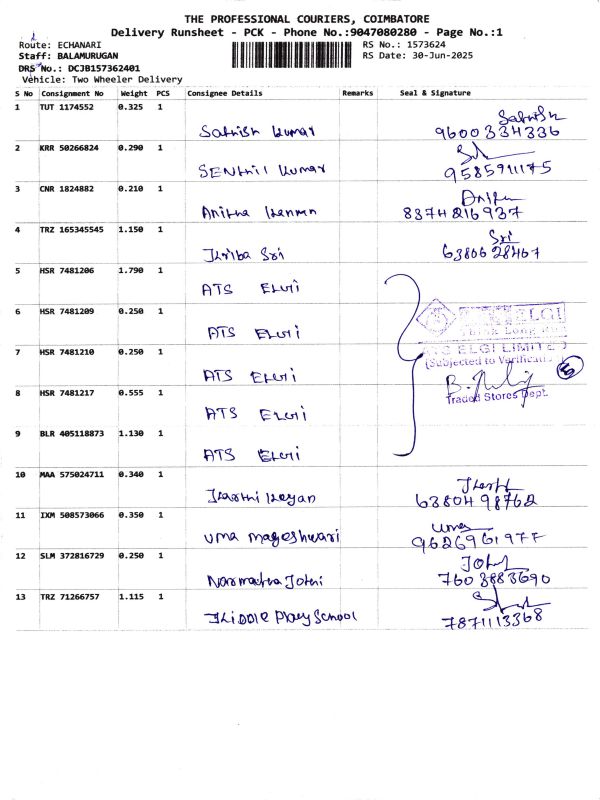 THE PROFESSIONAL COURIERS, COIMBATORE
Delivery Runsheet - PCK - Phone No.:9047080280 - Page No.:1
Route: ECHANARI
RS No.: 1573624
Staff: BALAMURUGAN
RS Date: 30-Jun-2025
DRS No.: DCJB157362401
Vehicle: Two Wheeler Delivery
S No Consignment No Weight PCS Consignee Details Remarks Seal & Signature
1 TUT 1174552 0.325 1
Sathish
Sathish Kumar 9600334336
2 KRR 50266824 0.290 1
SENthil Kumar 9585911175
3 CNR 1824882 0.210 1
Anitha Kannan 8374216937
4 TRZ 165345545 1.150 1
Sri
Kiriba Sri 6380628467
5 HSR 7481206 1.790 1
ATS ELGi
6 HSR 7481209 0.250 1
ELGI
ATS ELGi
7 HSR 7481210 0.250 1
ATS ELGI LIMITED
(Subjected to Verification)
ATS ELGi
8 HSR 7481217 0.555 1
Traded Stores Dept.
ATS ELGi
9 BLR 405118873 1.130 1
ATS ELGi
10 MAA 575024711 0.340 1
Karthi Keyan 6380498762
11 IXM 508573066 0.350 1
uma
uma mageshwari 9626961977
12 SLM 372816729 0.250 1
Jothi
Narmatha Jothi 7603883690
13 TRZ 71266757 1.115 1
KiDDIE Play School 7871113368